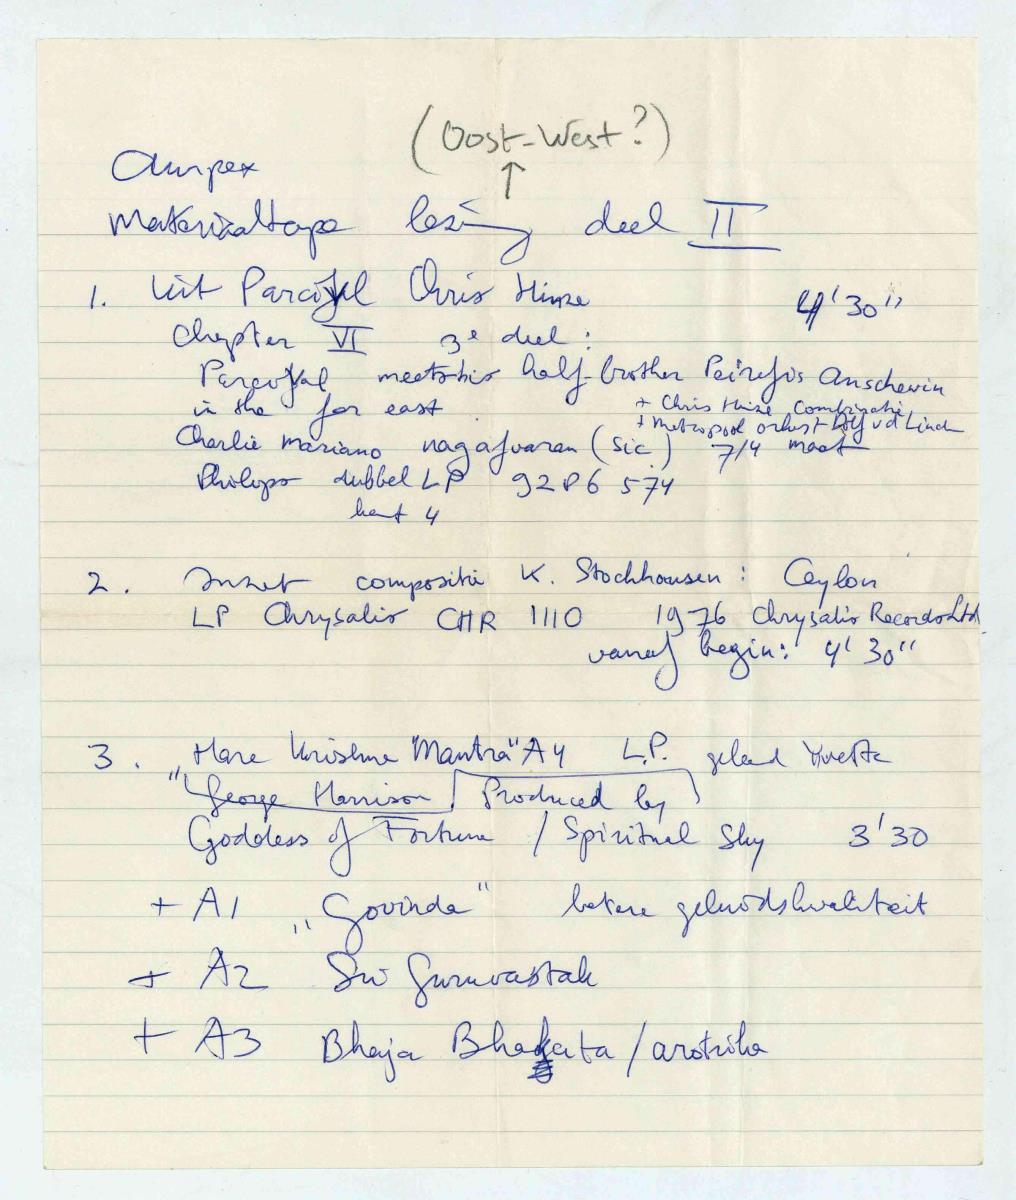 (Oost-West?)
↑
Ampex
Materiaaltape lezing deel II
1. Uit Parcifal Chris Hinze 4'30"
Chapter VI 3e deel:
Parcifal meets his half-brother Peirefis Anschewin
in the far east + Chris Hinze Combinatie
+ Metropool orkest Dolf vd Linden
Charlie Mariano nagasvaran (sic) 7/4 maat
Philips dubbel LP 9286 574
kant 4
2. Inzet compositie K. Stockhausen: Ceylon
LP Chrysalis CHR 1110 1976 Chrysalis Records Ltd
vanaf begin: 4'30"
3. "Hare Krishna "Mantra" A4 L.P.
"George Harrison Produced by
Goddess of Fortune / Spiritual Sky 3'30
+ A1 "Govinda" betere geluidskwaliteit
+ A2 Sri Gurvastak
+ A3 Bhaja Bhakata / arotrika